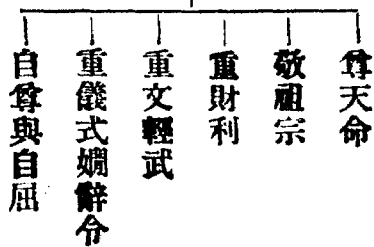 尊天命
敬祖宗
重財利
重文輕武
重儀式嫺辭令
自尊與自屈